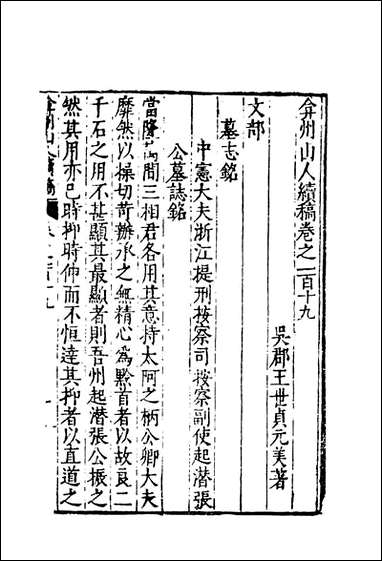 弇州山人續稿卷之一百十九
吳郡王世貞元美著
文部
墓志銘
中憲大夫浙江提刑按察司按察副使起潜張
公墓誌銘
當隆萬間三相君各用其意持太阿之柄公卿大夫
靡然以操切苛辦承之無精心爲黔首者以故良二
千石之用不甚顯其最顯者則吾州起潜張公振之
然其用亦已時抑時伸而不恒達其抑者以直道之